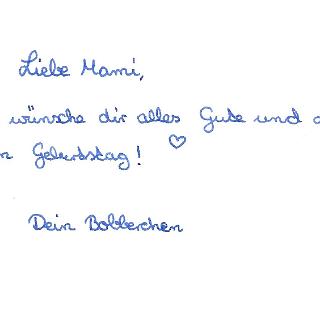 Liebe Mami,
wünsche dir alles Gute und
Geburtstag!
Dein Bobberchen